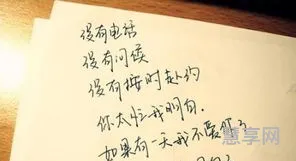 没有电话
没有问候
没有按时赴约
你太忙我明白.
如果有一天我不爱你了
慧享网